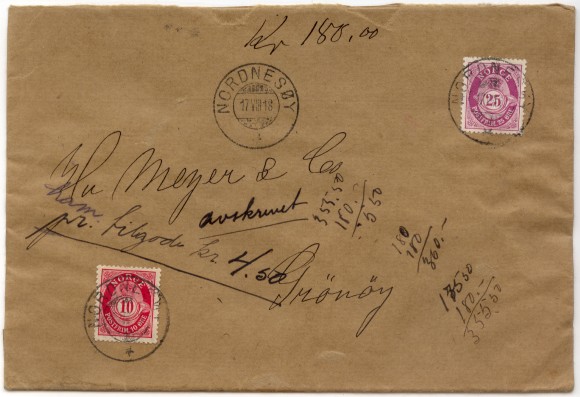 Kr 180.00
NORDNESØY
17 VIII 18
NORDNESØY
NORGE
25
POSTFRIM. 25 ØRE
Hr Meyer & Co
avskrevet
pr. tilgode kr. 4.50
Grönöy
355.50
180.-
180
180
360.-
180.-
355.50
NORDNESØY
NORGE
10
POSTFRIM. 10 ØRE